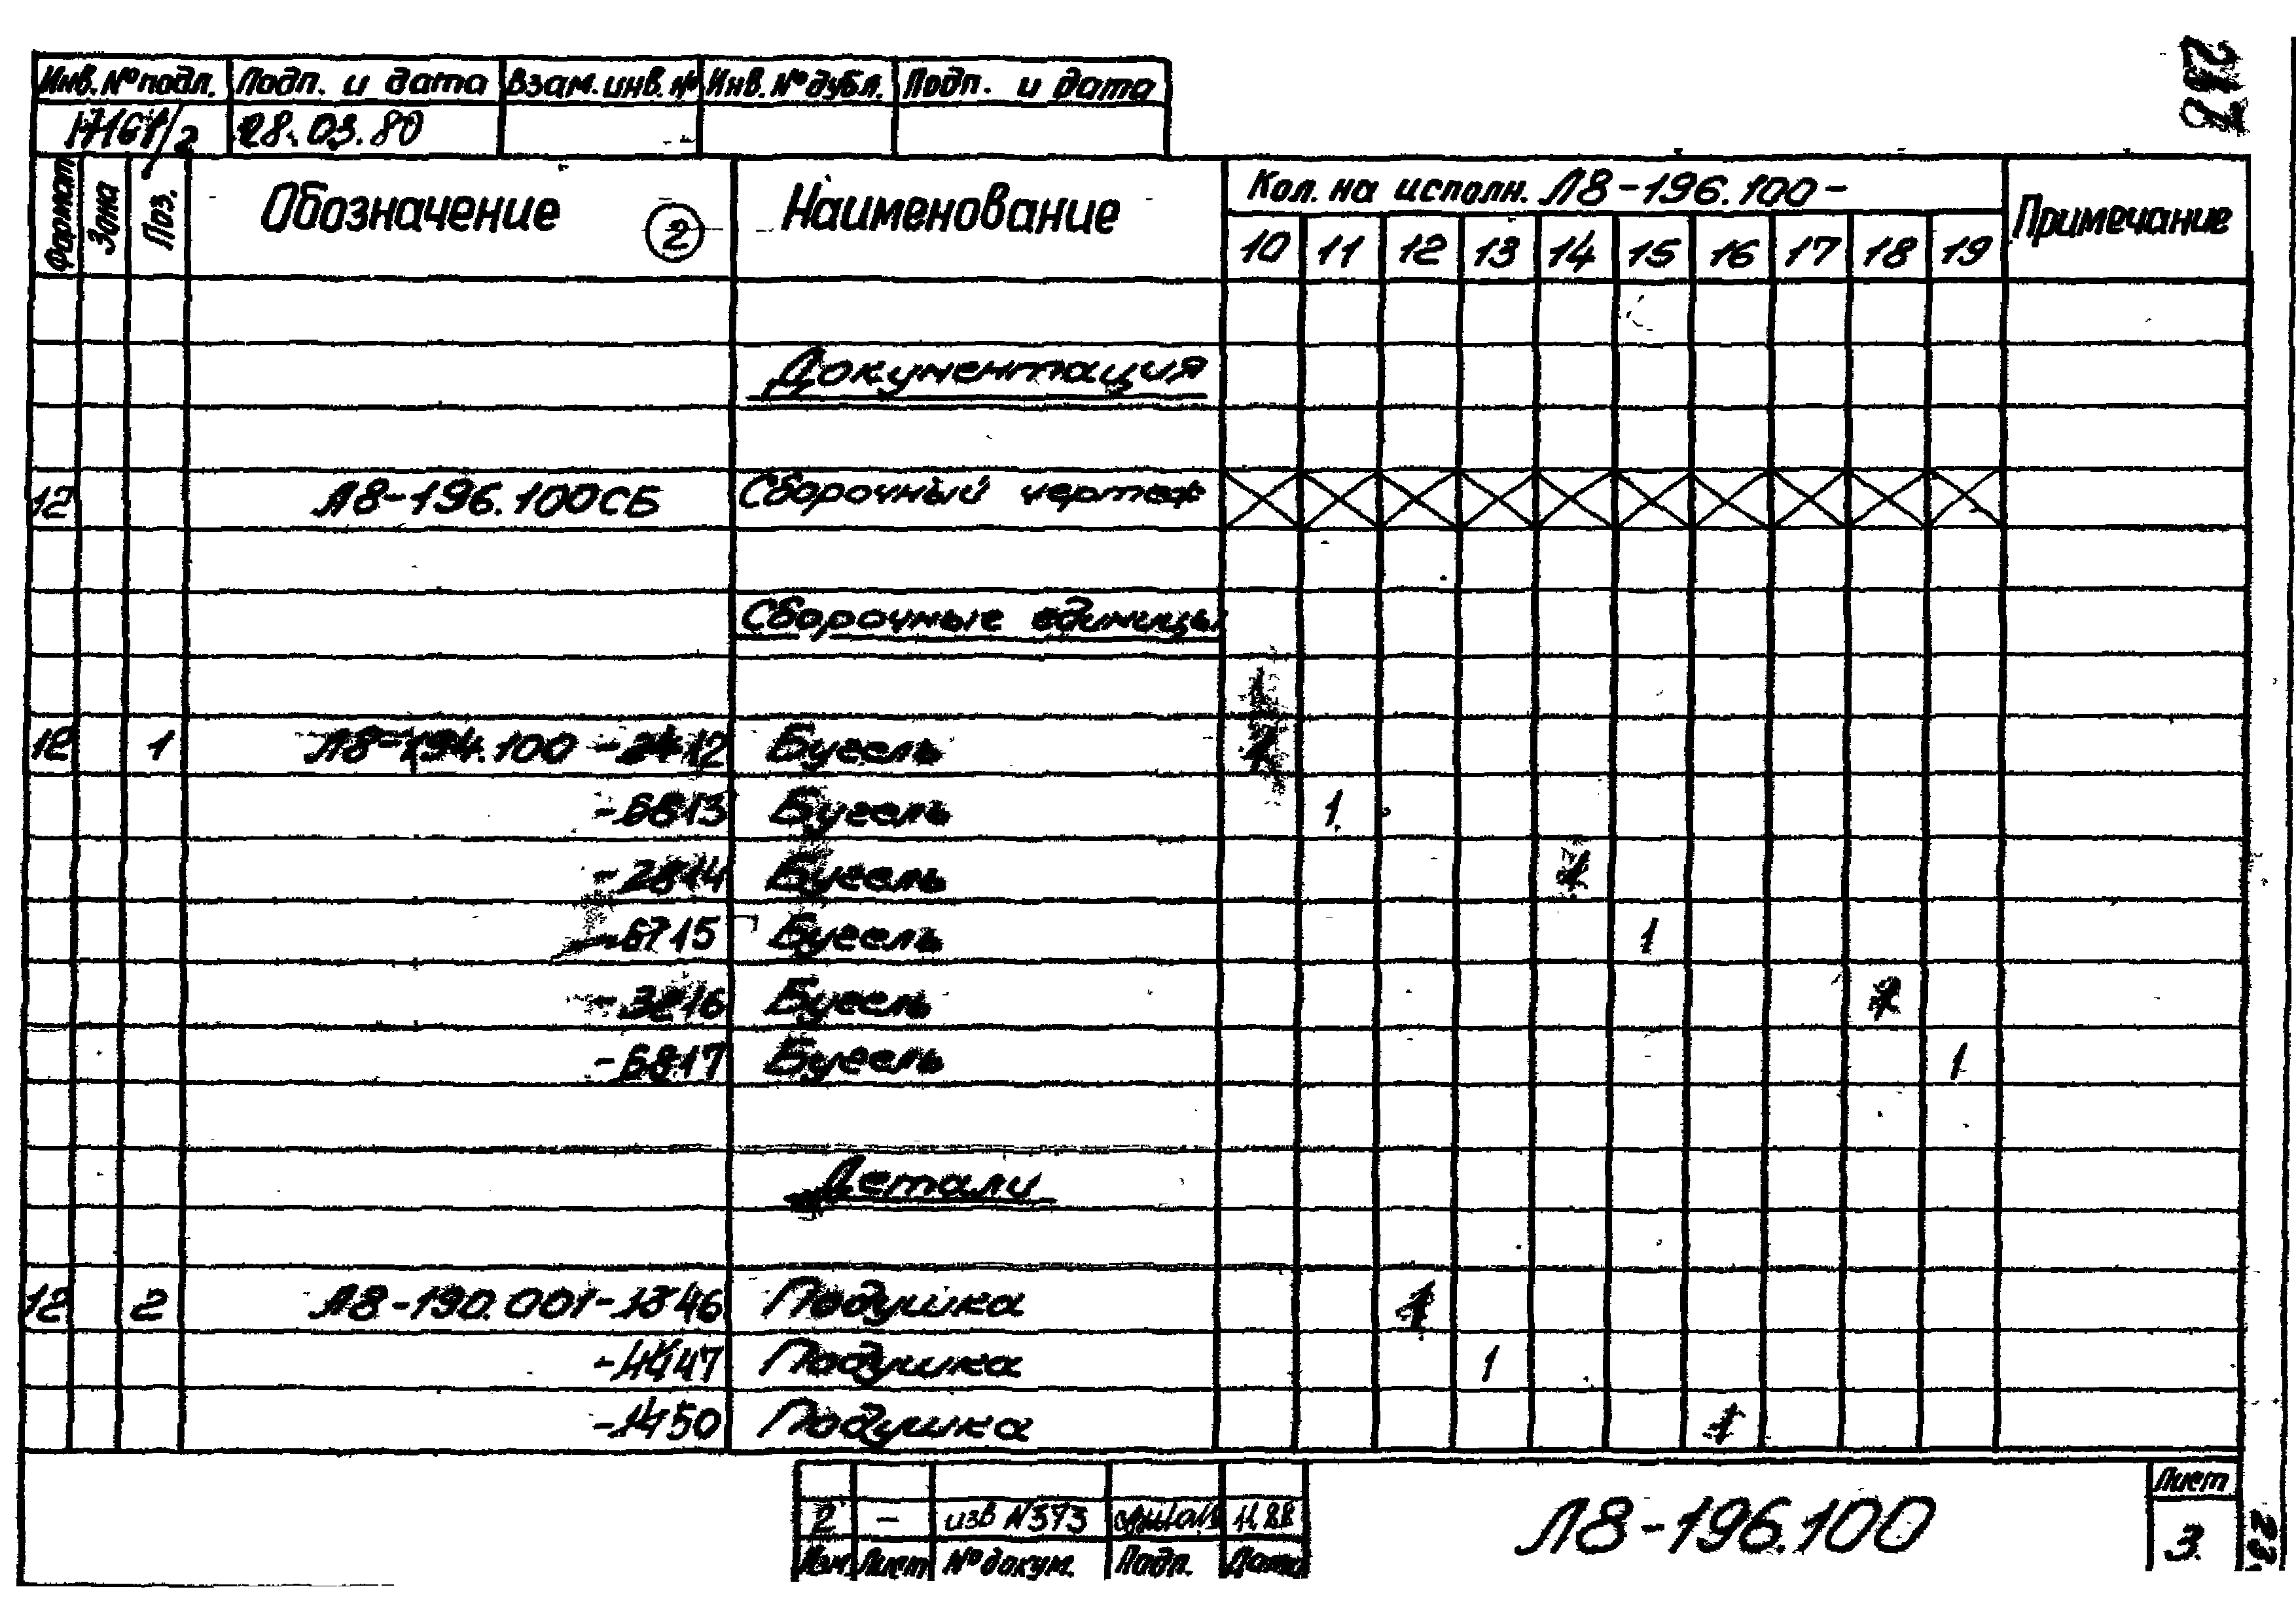 Инв. № подл. Подп. и дата Взам. инв. № Инв. № дубл. Подп. и дата
17161/2 28.03.80
Формат Зона Поз. Обозначение 2 Наименование Кол. на исполн. Л8-196.100- Примечание
10 11 12 13 14 15 16 17 18 19
Документация
12 Л8-196.100СБ Сборочный чертеж
Сборочные единицы
12 1 Л8-194.100 -12 Бугель 1
-13 Бугель 1
-14 Бугель 1
-15 Бугель 1
-16 Бугель 1
-17 Бугель 1
Детали
12 2 Л8-190.001-46 Подушка 1
-47 Подушка 1
-50 Подушка 1
2 - изв №373 11.88
Изм Лист № докум. Подп. Дата
Л8-196.100
Лист
3